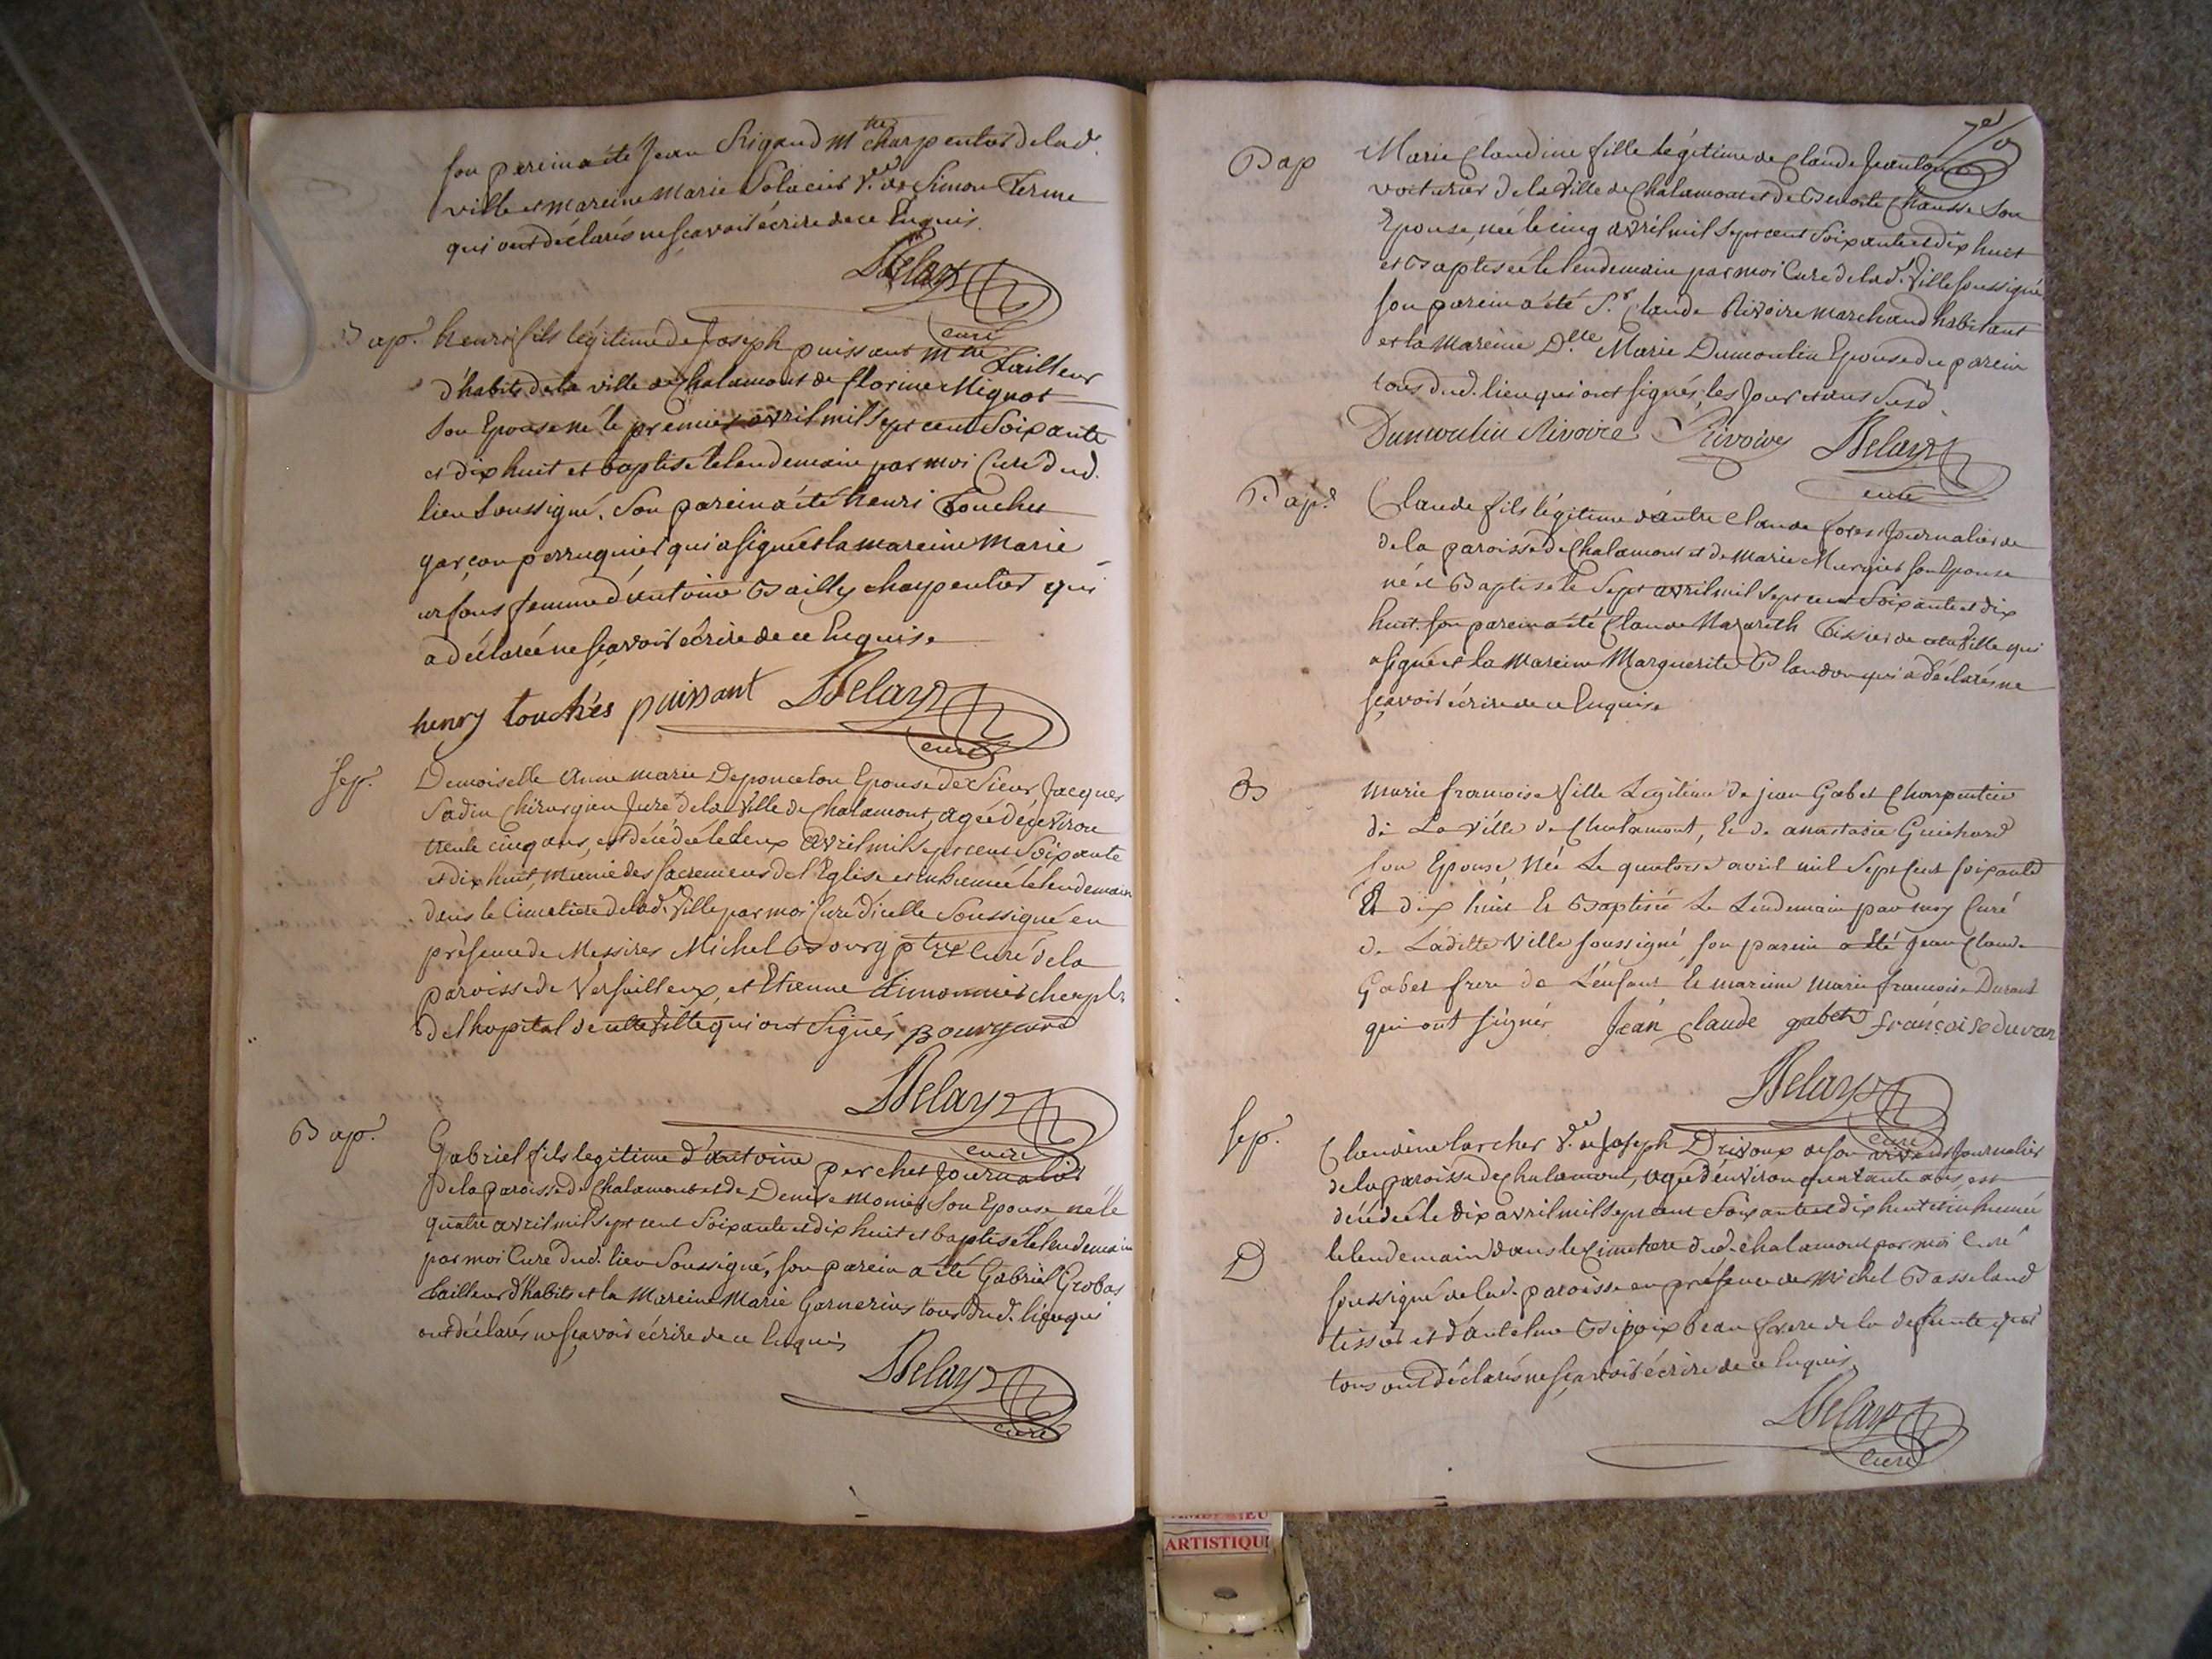 son parein a été Jean Rigaud mtre charpentier de lad.
ville et mareine Marie Solacier Ve. de Simon Ferme
qui ont déclarés ne sçavoir écrire de ce Enquis.
Delay
curé
Bap. henri fils légitime de Joseph puissant mtre Tailleur
d'habits de la ville de Chalamont et de florine Mignot
Son Epouse né le premier avril mil Sept cent Soixante
et dix huit et baptisé le lendemain par moi Curé dud.
lieu Soussigné. Son parein a été henri Touches
garçon perruquier qui a signé et la mareine Marie
femme d'antoine Bailly charpentier qui
a déclarée ne sçavoir écrire de ce Enquise
henry touchés puissant Delay
curé
Sep. Demoiselle Anne marie Deponceton Epouse de Sieur Jacques
Sadin Chirurgien Juré de la Ville de Chalamont, agée d'environ
trente cinq ans, est décédée le deux avril mil Sept cent Soixante
et dix huit, munie des Sacremens de l'Eglise et inhumée le lendemain
dans le Cimetière de lad. Ville par moi Curé d'icelle Soussigné en
présence de Messires Michel Bourg ptre et curé de la
paroisse de Versailleux, et Etienne Simonnier chapl.
de l'hopital de cette Ville qui ont Signés Bourg curé
Delay
curé
Bap. Gabriel fils legitime d'antoine perchet Journalier
de la paroisse de Chalamont et de Denise Monier Son Epouse né le
quatre avril mil Sept cent Soixante et dix huit et baptisé le lendemain
par moi Curé dud. lieu Soussigné, Son parein a été Gabriel Grobas
tailleur d'habits et la Mareine Marie Garnerius tous dud. lieu qui
ont déclarés ne sçavoir écrire de ce Enquis
Delay
curé
Bap Marie Claudine fille légitime de Claude
voiturier de la Ville de Chalamont et de Benoite Chausse Son
Epouse, née le cinq avril mil Sept cent Soixante et dix huit
et Baptisée le lendemain par moi Curé de lad. Ville soussigné
son parein a été Sr. Claude Rivoire marchand habitant
et la Mareine Dlle. Marie Dumoulin Epouse du parein
tous dud. lieu qui ont signés, les Jour et ans Susd.
Dumoulin Rivoire Rivoire Delay
curé
Bap. Claude fils légitime d'autre Claude forest Journalier de
de la paroisse de Chalamont et de Marie Murgier son Epouse
né et Baptisé le Sept avril mil Sept cent Soixante et dix
huit. son parein a été Claude Nazareth Tissier de cette Ville qui
a signé et la Mareine Marguerite Blandon qui a déclarés ne
sçavoir écrire de ce Enquise
B Marie francoise fille Légitime de jean Gabet Charpentier
de La Ville de Chalamont, Et de anastasie Guichard
son Epouse, Née Le quatorze avril mil Sept Cent soixante
Et dix huit Et Baptisée Le Lendemain par moy Curé
de Ladite Ville soussigné, son parein a été jean Claude
Gabet frere de L'enfant Et mareine marie francoise Durand
qui ont signés Jean Claude gabet françoise duran
Delay
curé
Sep. Claudine larcher Ve. de Joseph Drivoux de son vivant Journalier
de la paroisse de Chalamont, agée d'environ quarante ans, est
décédée le dix avril mil Sept cent Soixante et dix huit et inhumée
D le lendemain dans le Cimetiere dud. chalamont par moi Curé
soussigné de lad. paroisse en présence de Michel Basseland
tissier et d'antelme beau frere de la defunte qui
tous ont déclarés ne sçavoir écrire de ce Enquis
Delay
curé
ARTISTIQU